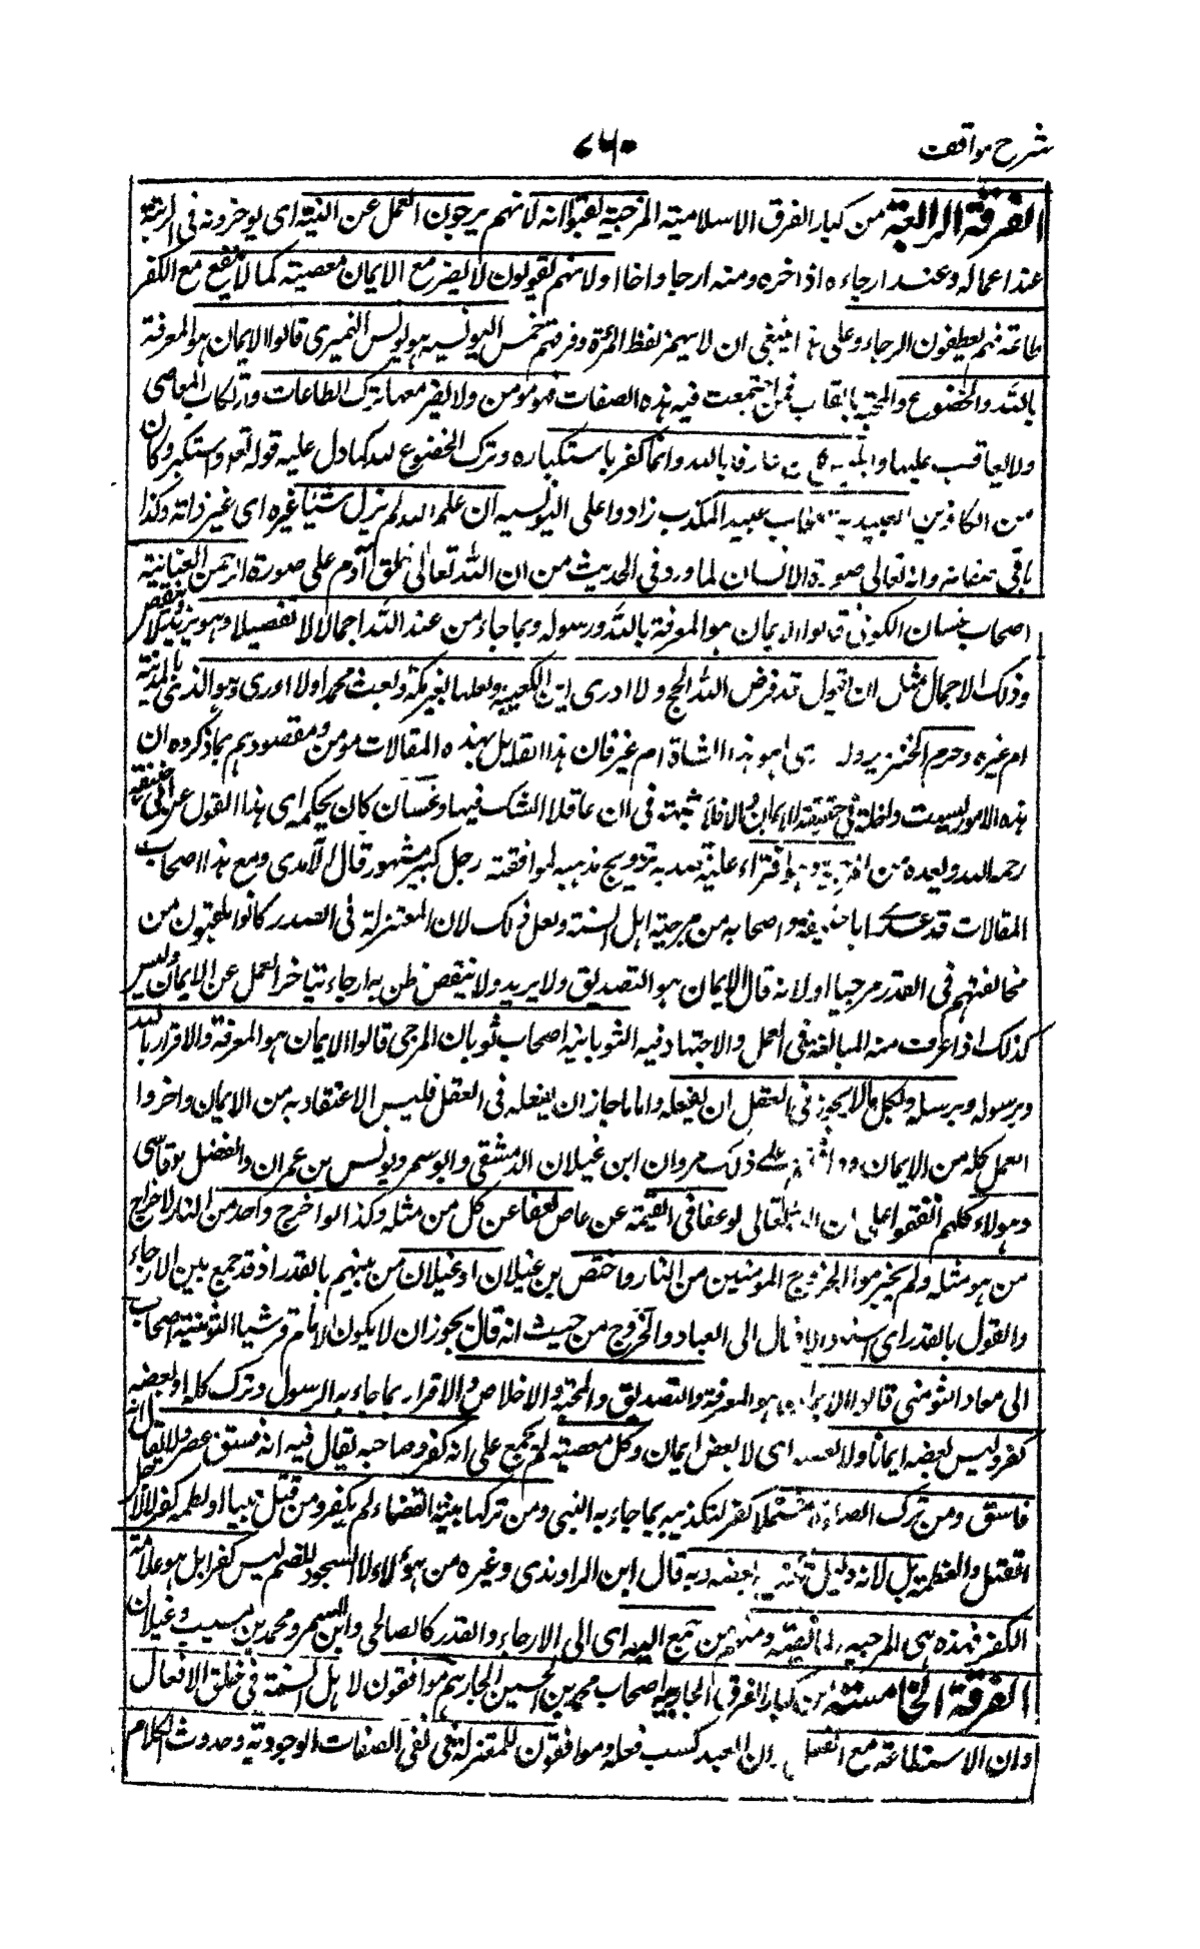 شرح مواقف
٧٦٠
الفرقة الرابعة من كبار الفرق الاسلامية المرجية لقبوا به لانهم يرجون العمل عن النية اى يوخرونه فى الرتبة
عنها وعن الاعتقاد من ارجاه اذا اخره ومنه ارجه واخاه اولانهم يقولون لا يضر مع الايمان معصية كما لا ينفع مع الكفر
طاعة فهم يعطون الرجاء وعلى هذا ينبغى ان لا يهمز لفظ المرجية وفرقهم خمس اليونسيه هو يونس النميرى قالوا الايمان هو المعرفة
بالله والخضوع والمحبة بالقلب فمن اجتمعت فيه هذه الصفات فهو مومن ولا يضر معها ترك الطاعات وارتكاب المعاصى
ولا يعاقب عليها وابليس عارفا بالله وانما كفر باستكباره وترك الخضوع لله كما دل عليه قوله تعم واستكبر وكان
من الكافرين العبيدية اصحاب عبيد المكذب زادوا على اليونسيه ان علم الله لم يزل شيئا غيره اى غير ذاته وكذا
باقى صفاته وانه تعالى صورة الانسان لما ورد فى الحديث من ان الله تعالى خلق آدم على صورة الرحمن الغسانية
اصحاب غسان الكوفى قالوا الايمان هو المعرفة بالله ورسوله وبما جاء من عند الله اجمالا لا تفصيلا وهو يزيد ولا ينقص
وذلك الاجمال مثل ان يقول قد فرض الله الحج ولا ادرى اين الكعبة ولعلها بغير مكة وبعث محمد اولا ادرى اهو الذى بالمدينة
ام غيره وحرم الخنزير ولا اهو هذا الشاة ام غيره فان هذا القايل بهذه المقالات مومن ومقصودهم بما ذكروه ان
هذه الامور ليست داخلة فى حقيقة الايمان والا فلا شبهة فى ان عاقلا لا يشك فيها وغسان كان يحكيه اى هذا القول عن ابى حنيفة
رحمه الله ويعده من المرجية وهو افتراء عليه قصد به ترويج مذهبه لموافقة رجل كبير مشهور قال الآمدى ومع هذا اصحاب
المقالات قد عدوا ابا حنيفة واصحابه من مرجية اهل السنة ولعل ذلك لان المعتزلة فى الصدر كانوا يلقبون من
خالفهم فى القدر مرجيا اولانه قال الايمان هو التصديق ولا يزيد ولا ينقص ظن به ارجاء بتاخر العمل عن الايمان وليس
كذلك اذا عرفت منه المبالغة فى العمل والاجتهاد فيه الثوبانية اصحاب ثوبان المرجى قالوا الايمان هو المعرفة والاقرار بالله
وبرسوله وبرسله وبكل ما لا يجوز فى العقل ان يفعله واما ما جاز ان يفعله فى العقل فليس الاعتقاد به من الايمان واخروا
العمل كله من الايمان ووافقهم على ذلك مروان ابن غيلان الدمشقى وابو سمر ويونس بن عمران والفضل بوقاسى
وهولاء كلهم اتفقوا على ان الله تعالى لو عفا فى القيمة عن عاص لعفا عن كل من مثله وكذا لو اخرج واحد من النار لاخراج
من هو مثله ولم يجزموا بخروج المومنين من النار واختص بن غيلان او غيلان من بينهم بالقدر اذ قد جمع بين الارجاء
والقول بالقدر اى اسناد الافعال الى العباد والخروج من حيث انه قال يجوز ان لا يكون الامام قرشيا التومنية اصحاب
ابى معاذ التومنى قالوا الايمان هو المعرفة والتصديق والمحبة والاخلاص والاقرار بما جاء به الرسول وترك كله او بعضه
كفر وليس بعضه ايمانا ولا بعضه اى لا بعض ايمان وكل معصية لم يجمع على انه كفر فصاحبه يقال فيه انه فسق عصى ولا يقال انه
فاسق ومن ترك الصلوة مستحلا كفر لتكذيبه بما جاء به النبى ومن تركها بنية القضاء لم يكفر ومن قتل نبيا او لطمه كفر لا لاجل
القتل واللطمة بل لانه دليل تكذيبه وبغضه وبه قال ابن الراوندى وغيره من هؤلاء لا السجود للصنم ليس كفرا بل هو علامة
الكفر فهذه هى المرجيه الخالصة ومنهم من جمع اليه اى الى الارجاء والقدر كالصالحى وابى سمر ومحمد بن سبيب وغيلان
الفرقة الخامسة من كبار الفرق النجارية اصحاب محمد بن الحسين النجار هم موافقون لاهل السنة فى خلق الافعال
وان الاستطاعة مع الفعل وان العبد كسب فعله وموافقون للمعتزلة فى نفى الصفات الوجودية وحدوث الكلام